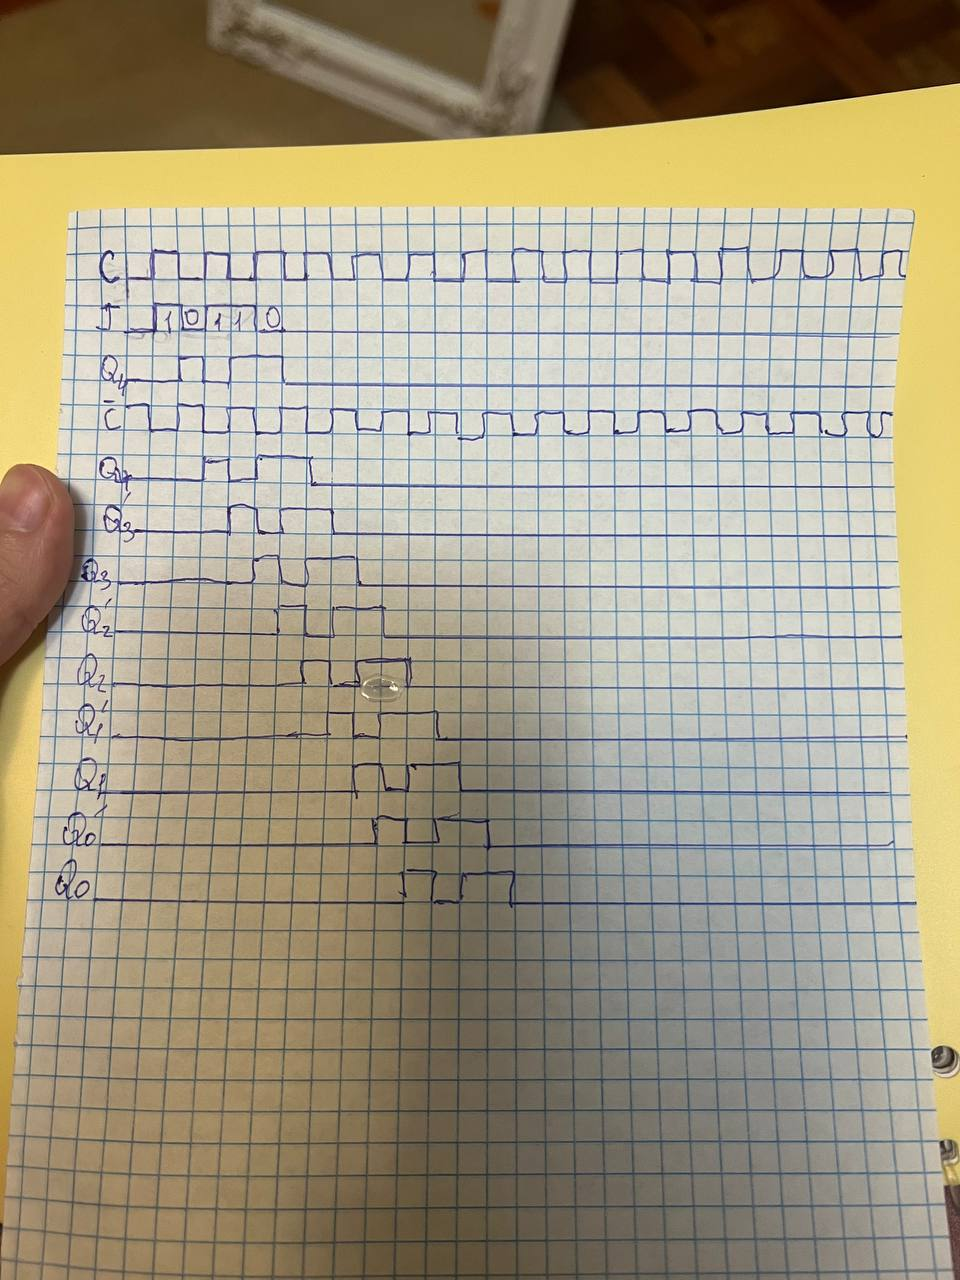 C
I 1 0 1 1 0
Q'4
C̄
Q4
Q'3
Q3
Q'2
Q2
Q'1
Q1
Q'0
Q0